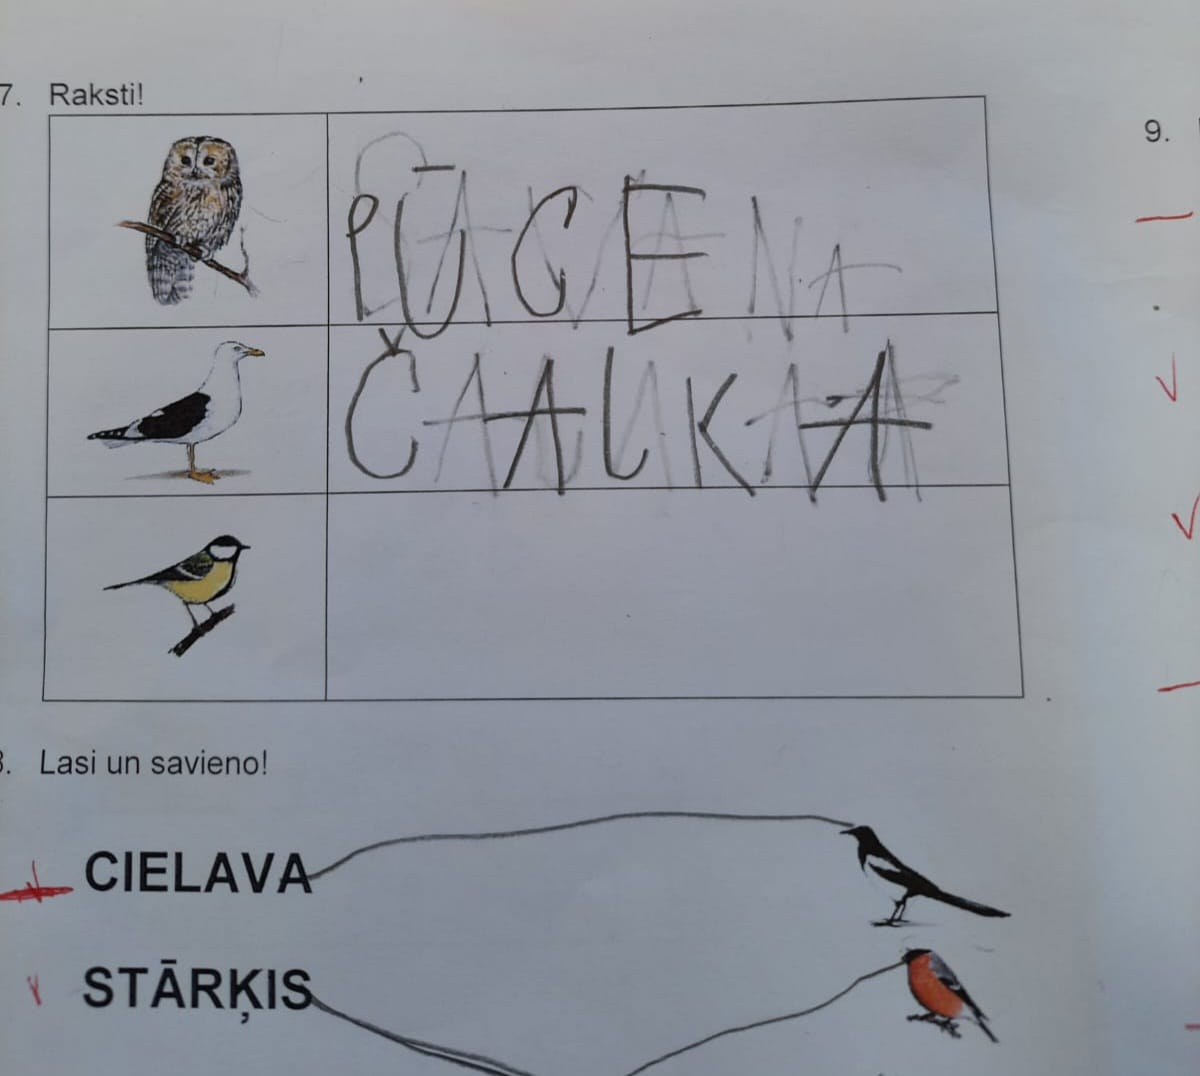 7. Raksti!
9.
PŪCE
ČAUKA
8. Lasi un savieno!
CIELAVA
STĀRĶIS